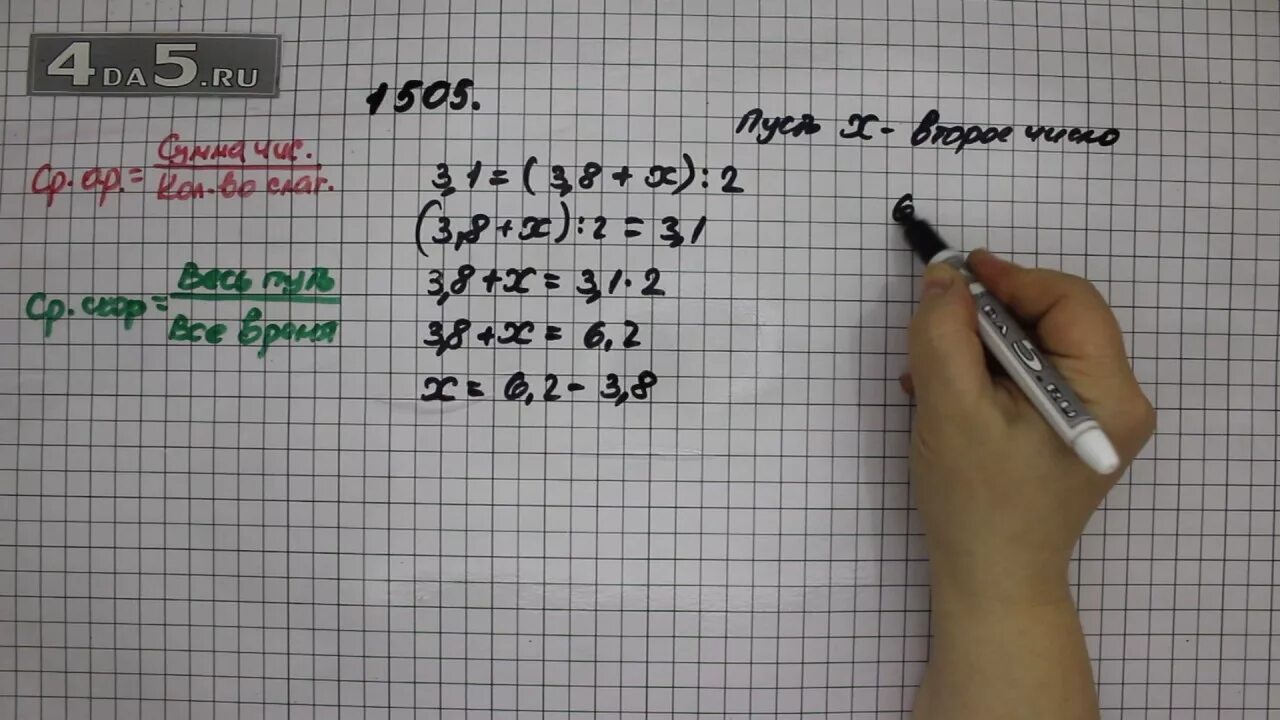 4DA5.RU
1505.
Пусть x - второе число
Ср. ар. = Сумма чис.
Кол-во слаг.
3,1 = (3,8 + x) : 2
(3,8 + x) : 2 = 3,1
3,8 + x = 3,1 · 2
3,8 + x = 6,2
x = 6,2 - 3,8
Ср. скор = Весь путь
Все время
6
DA5.RU